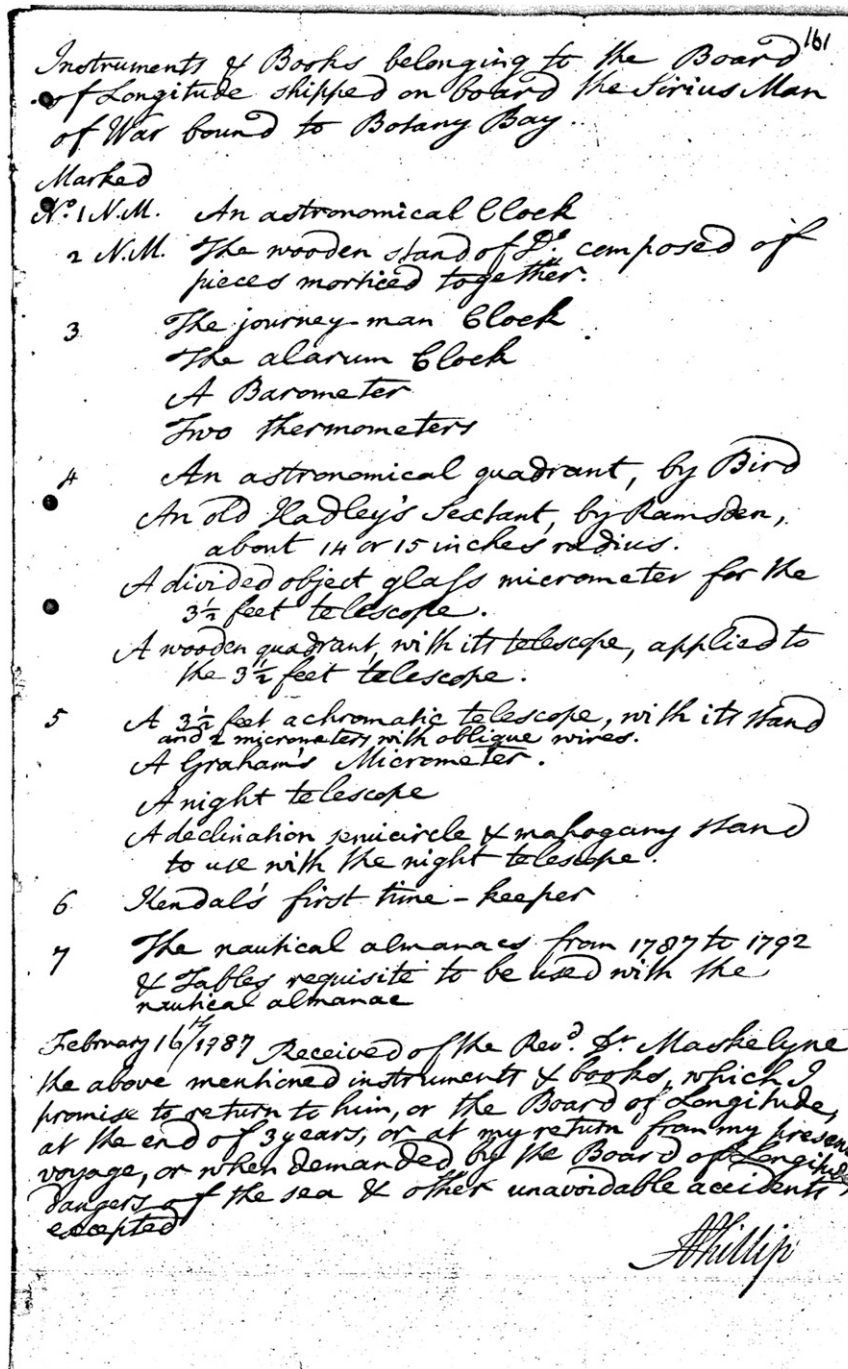 161
Instruments & Books belonging to the Board
of Longitude shipped on board the Sirius Man
of War bound to Botany Bay.
Marked
No. 1 N.M. An astronomical Clock
2 N.M. The wooden stand of Do. composed of
pieces morticed together.
3 The journey-man Clock
The alarum Clock
A Barometer
Two thermometers
4 An astronomical quadrant, by Bird
An old Hadley's Sextant, by Ramsden,
about 14 or 15 inches radius.
A divided object glass micrometer for the
3½ feet telescope.
A wooden quadrant, with its telescope, applied to
the 3½ feet telescope.
5 A 3½ feet achromatic telescope, with its stand
and 2 micrometers with oblique wires.
A Graham's Micrometer.
A night telescope
A declination semicircle & mahogany stand
to use with the night telescope.
6 Kendal's first time-keeper
7 The nautical almanacs from 1787 to 1792
& Tables requisite to be used with the
nautical almanac
February 16th/1787 Received of the Revd. Dr. Maskelyne
the above mentioned instruments & books, which I
promise to return to him, or the Board of Longitude,
at the end of 3 years, or at my return from my present
voyage, or when demanded by the Board of Longitude,
dangers of the sea & other unavoidable accidents
excepted
APhillip